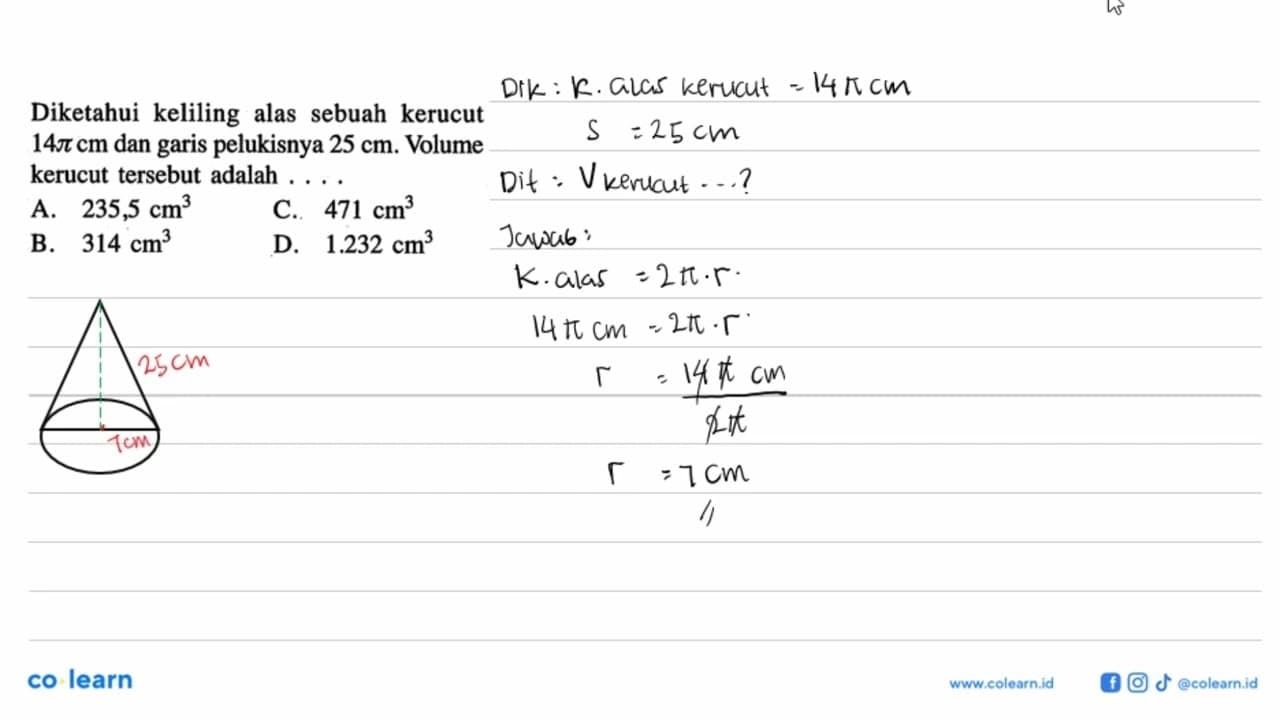 Diketahui keliling alas sebuah kerucut
14π cm dan garis pelukisnya 25 cm. Volume
kerucut tersebut adalah . . . .
A. 235,5 cm³ C. 471 cm³
B. 314 cm³ D. 1.232 cm³
25 cm
7 cm
Dik : K. alas kerucut = 14 π cm
s = 25 cm
Dit : V kerucut ...?
Jawab :
K. alas = 2π · r
14 π cm = 2π · r
r = 14 π cm
2π
r = 7 cm
co·learn
www.colearn.id
@colearn.id